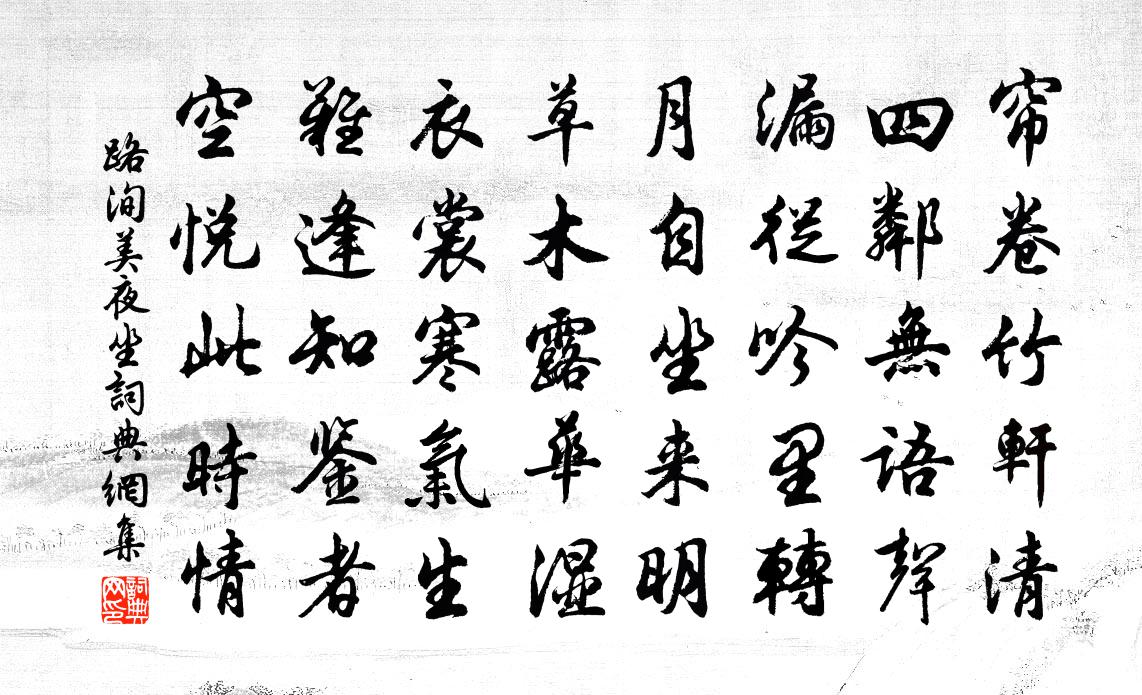 帘卷竹軒清
四鄰無語聲
漏從吟里轉
月自坐来明
草木露華濕
衣裳寒氣生
難逢知鉴者
空悦此時情
路洵美夜坐詞典網集
詞典网印